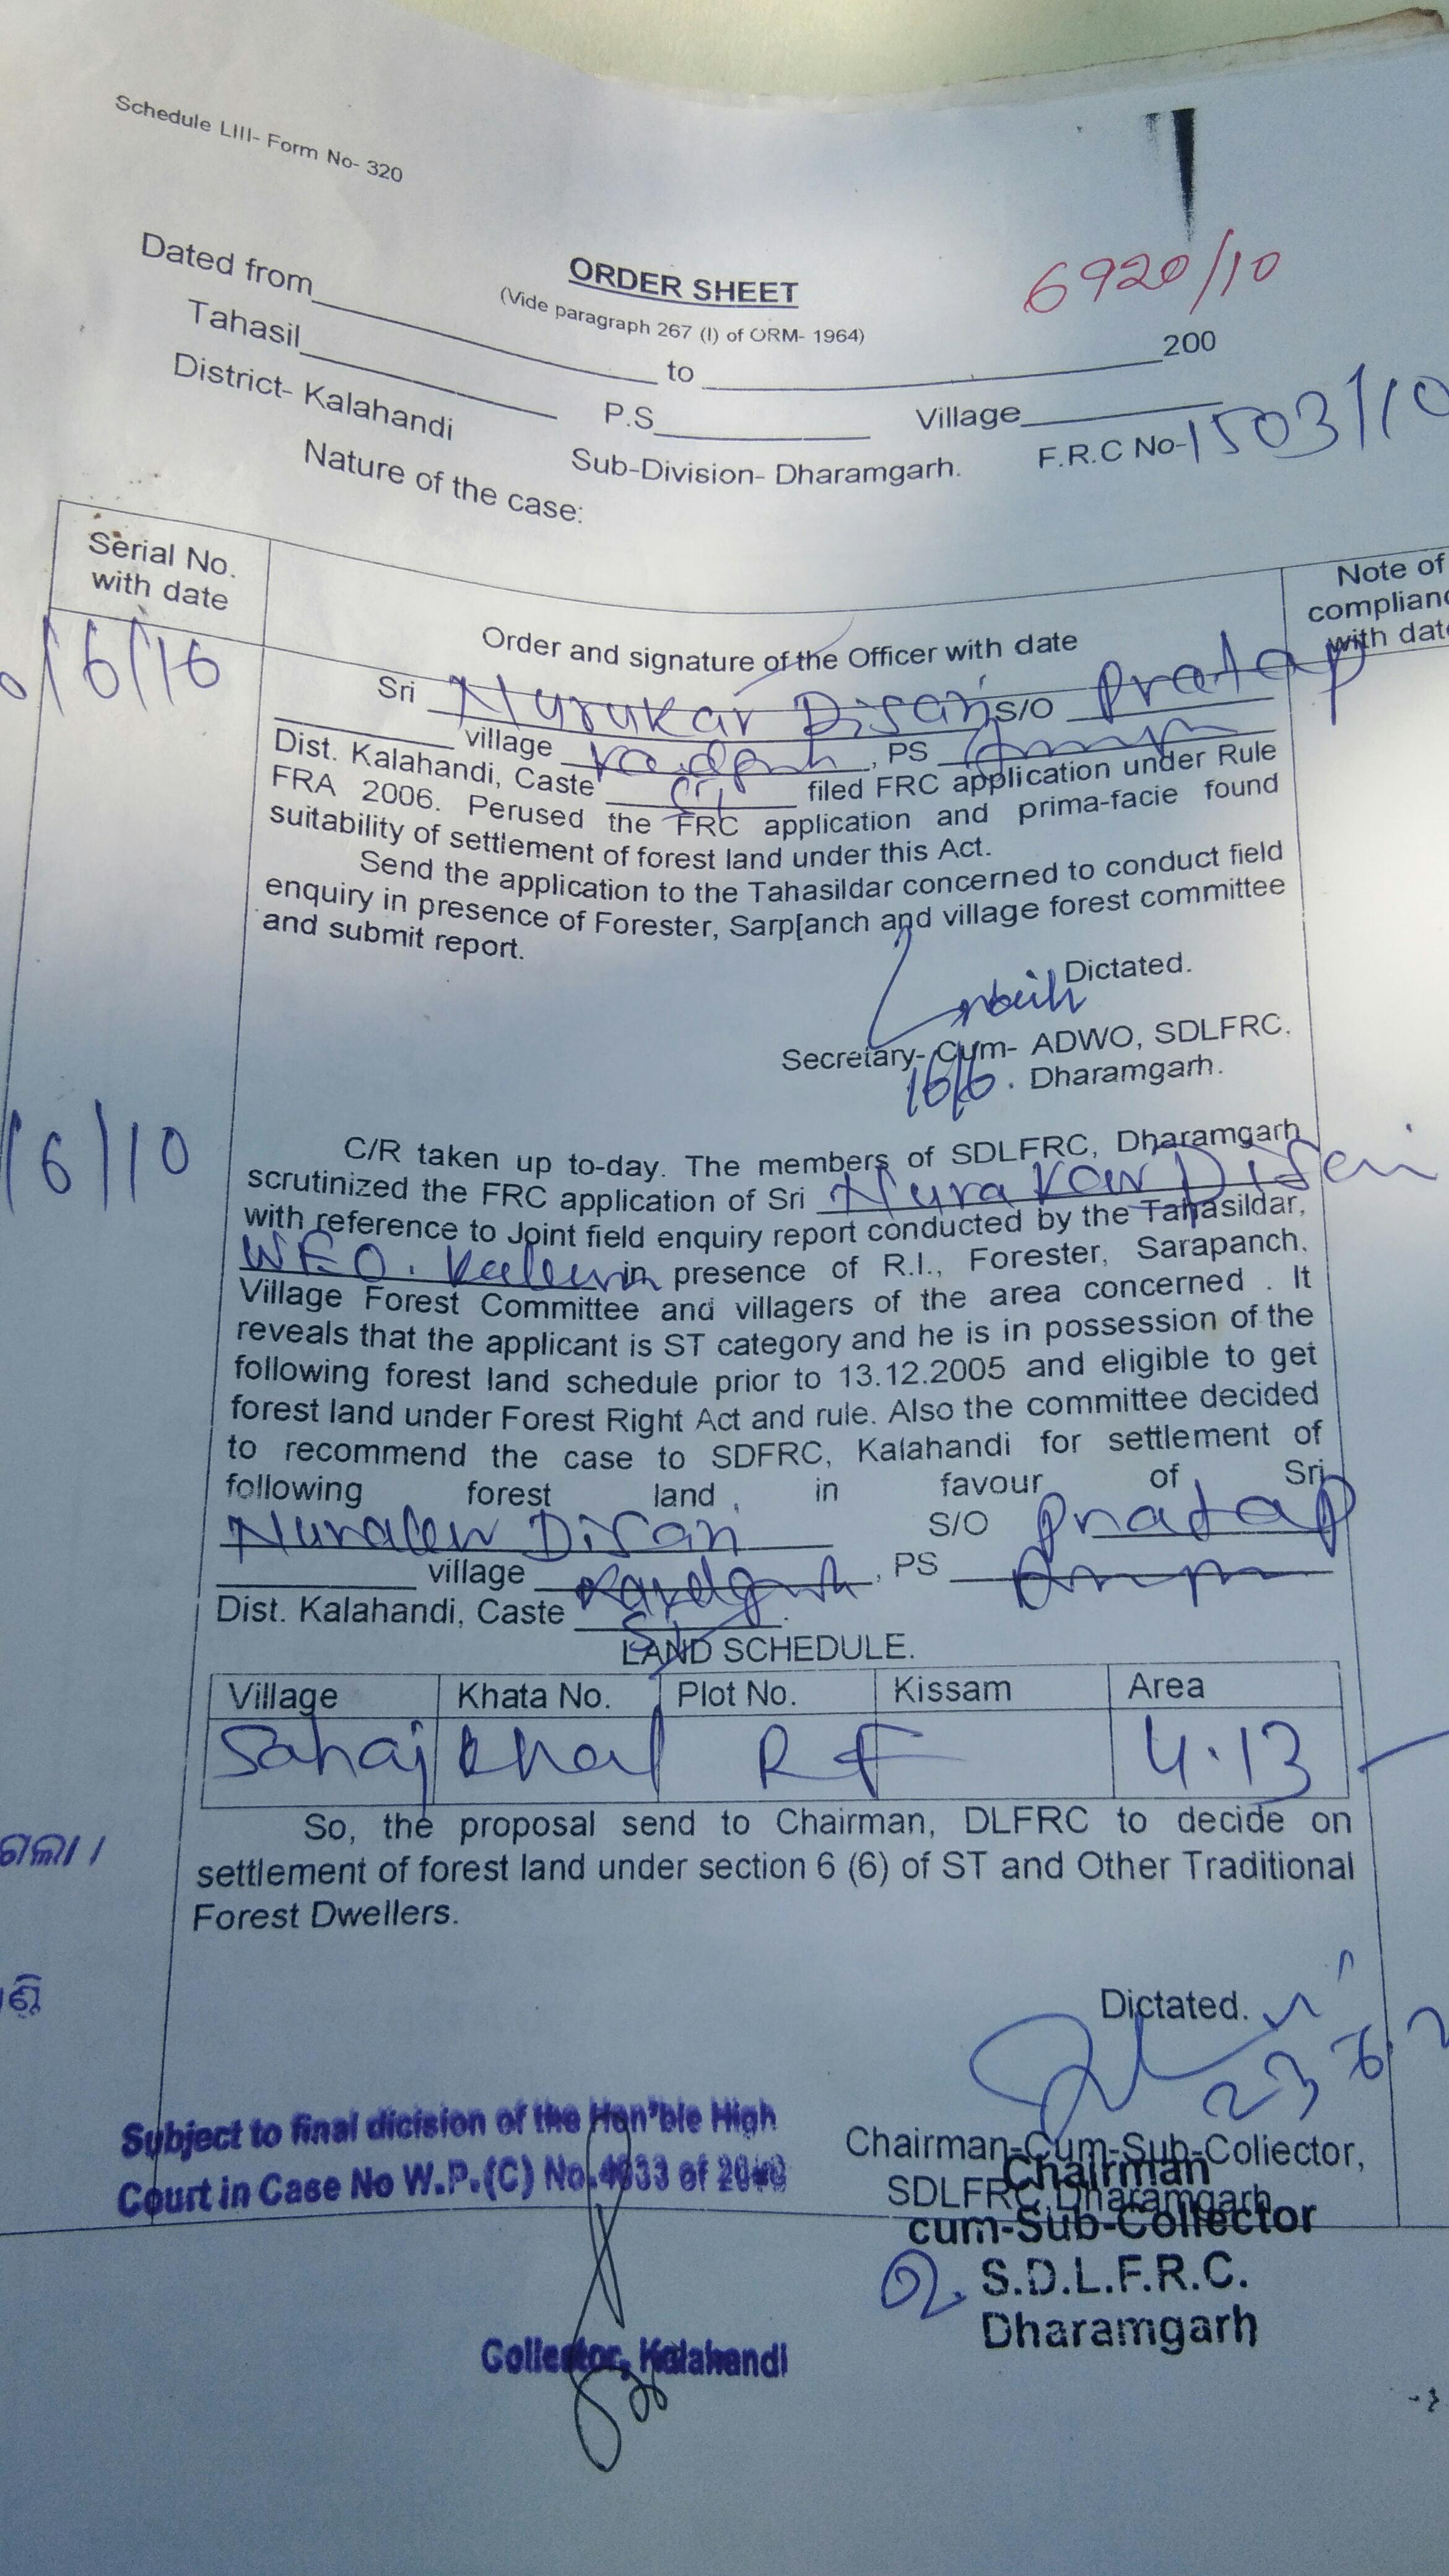 Schedule LIII- Form No- 320
ORDER SHEET
6920/10
(Vide paragraph 267 (I) of ORM- 1964)
Dated from to 200
Tahasil P.S Village
District- Kalahandi Sub-Division- Dharamgarh. F.R.C No- 1503/10
Nature of the case:
Serial No.
with date
Order and signature of the Officer with date
Note of
with
/6/10
Sri Nurukar Disari S/O Pratap
village , PS
Dist. Kalahandi, Caste filed FRC application under Rule
FRA 2006. Perused the FRC application and prima-facie found
suitability of settlement of forest land under this Act.
Send the application to the Tahasildar concerned to conduct field
enquiry in presence of Forester, Sarp[anch and village forest committee
and submit report.
Dictated.
Secretary- Cum- ADWO, SDLFRC.
16/6. Dharamgarh.
/6/10
C/R taken up to-day. The members of SDLFRC, Dharamgarh
scrutinized the FRC application of Sri Nurakar Disari
with reference to Joint field enquiry report conducted by the Tahasildar,
W.E.O. in presence of R.I., Forester, Sarapanch.
Village Forest Committee and villagers of the area concerned . It
reveals that the applicant is ST category and he is in possession of the
following forest land schedule prior to 13.12.2005 and eligible to get
forest land under Forest Right Act and rule. Also the committee decided
to recommend the case to SDFRC, Kalahandi for settlement of
following forest land , in favour of Sri
Disari S/O Pratap
village , PS
Dist. Kalahandi, Caste .
LAND SCHEDULE.
Village Khata No. Plot No. Kissam Area
Sahajkhal RF 4.13
So, the proposal send to Chairman, DLFRC to decide on
settlement of forest land under section 6 (6) of ST and Other Traditional
Forest Dwellers.
ଗଲା ।
Dictated.
Subject to final dicision of the Hon'ble High
Court in Case No W.P.(C) No.4933 of
Chairman-Cum-Sub-Collector,
SDLFRC, Dharamgarh
Chairman
cum-Sub-Collector
S.D.L.F.R.C.
Dharamgarh
Collector, Kalahandi